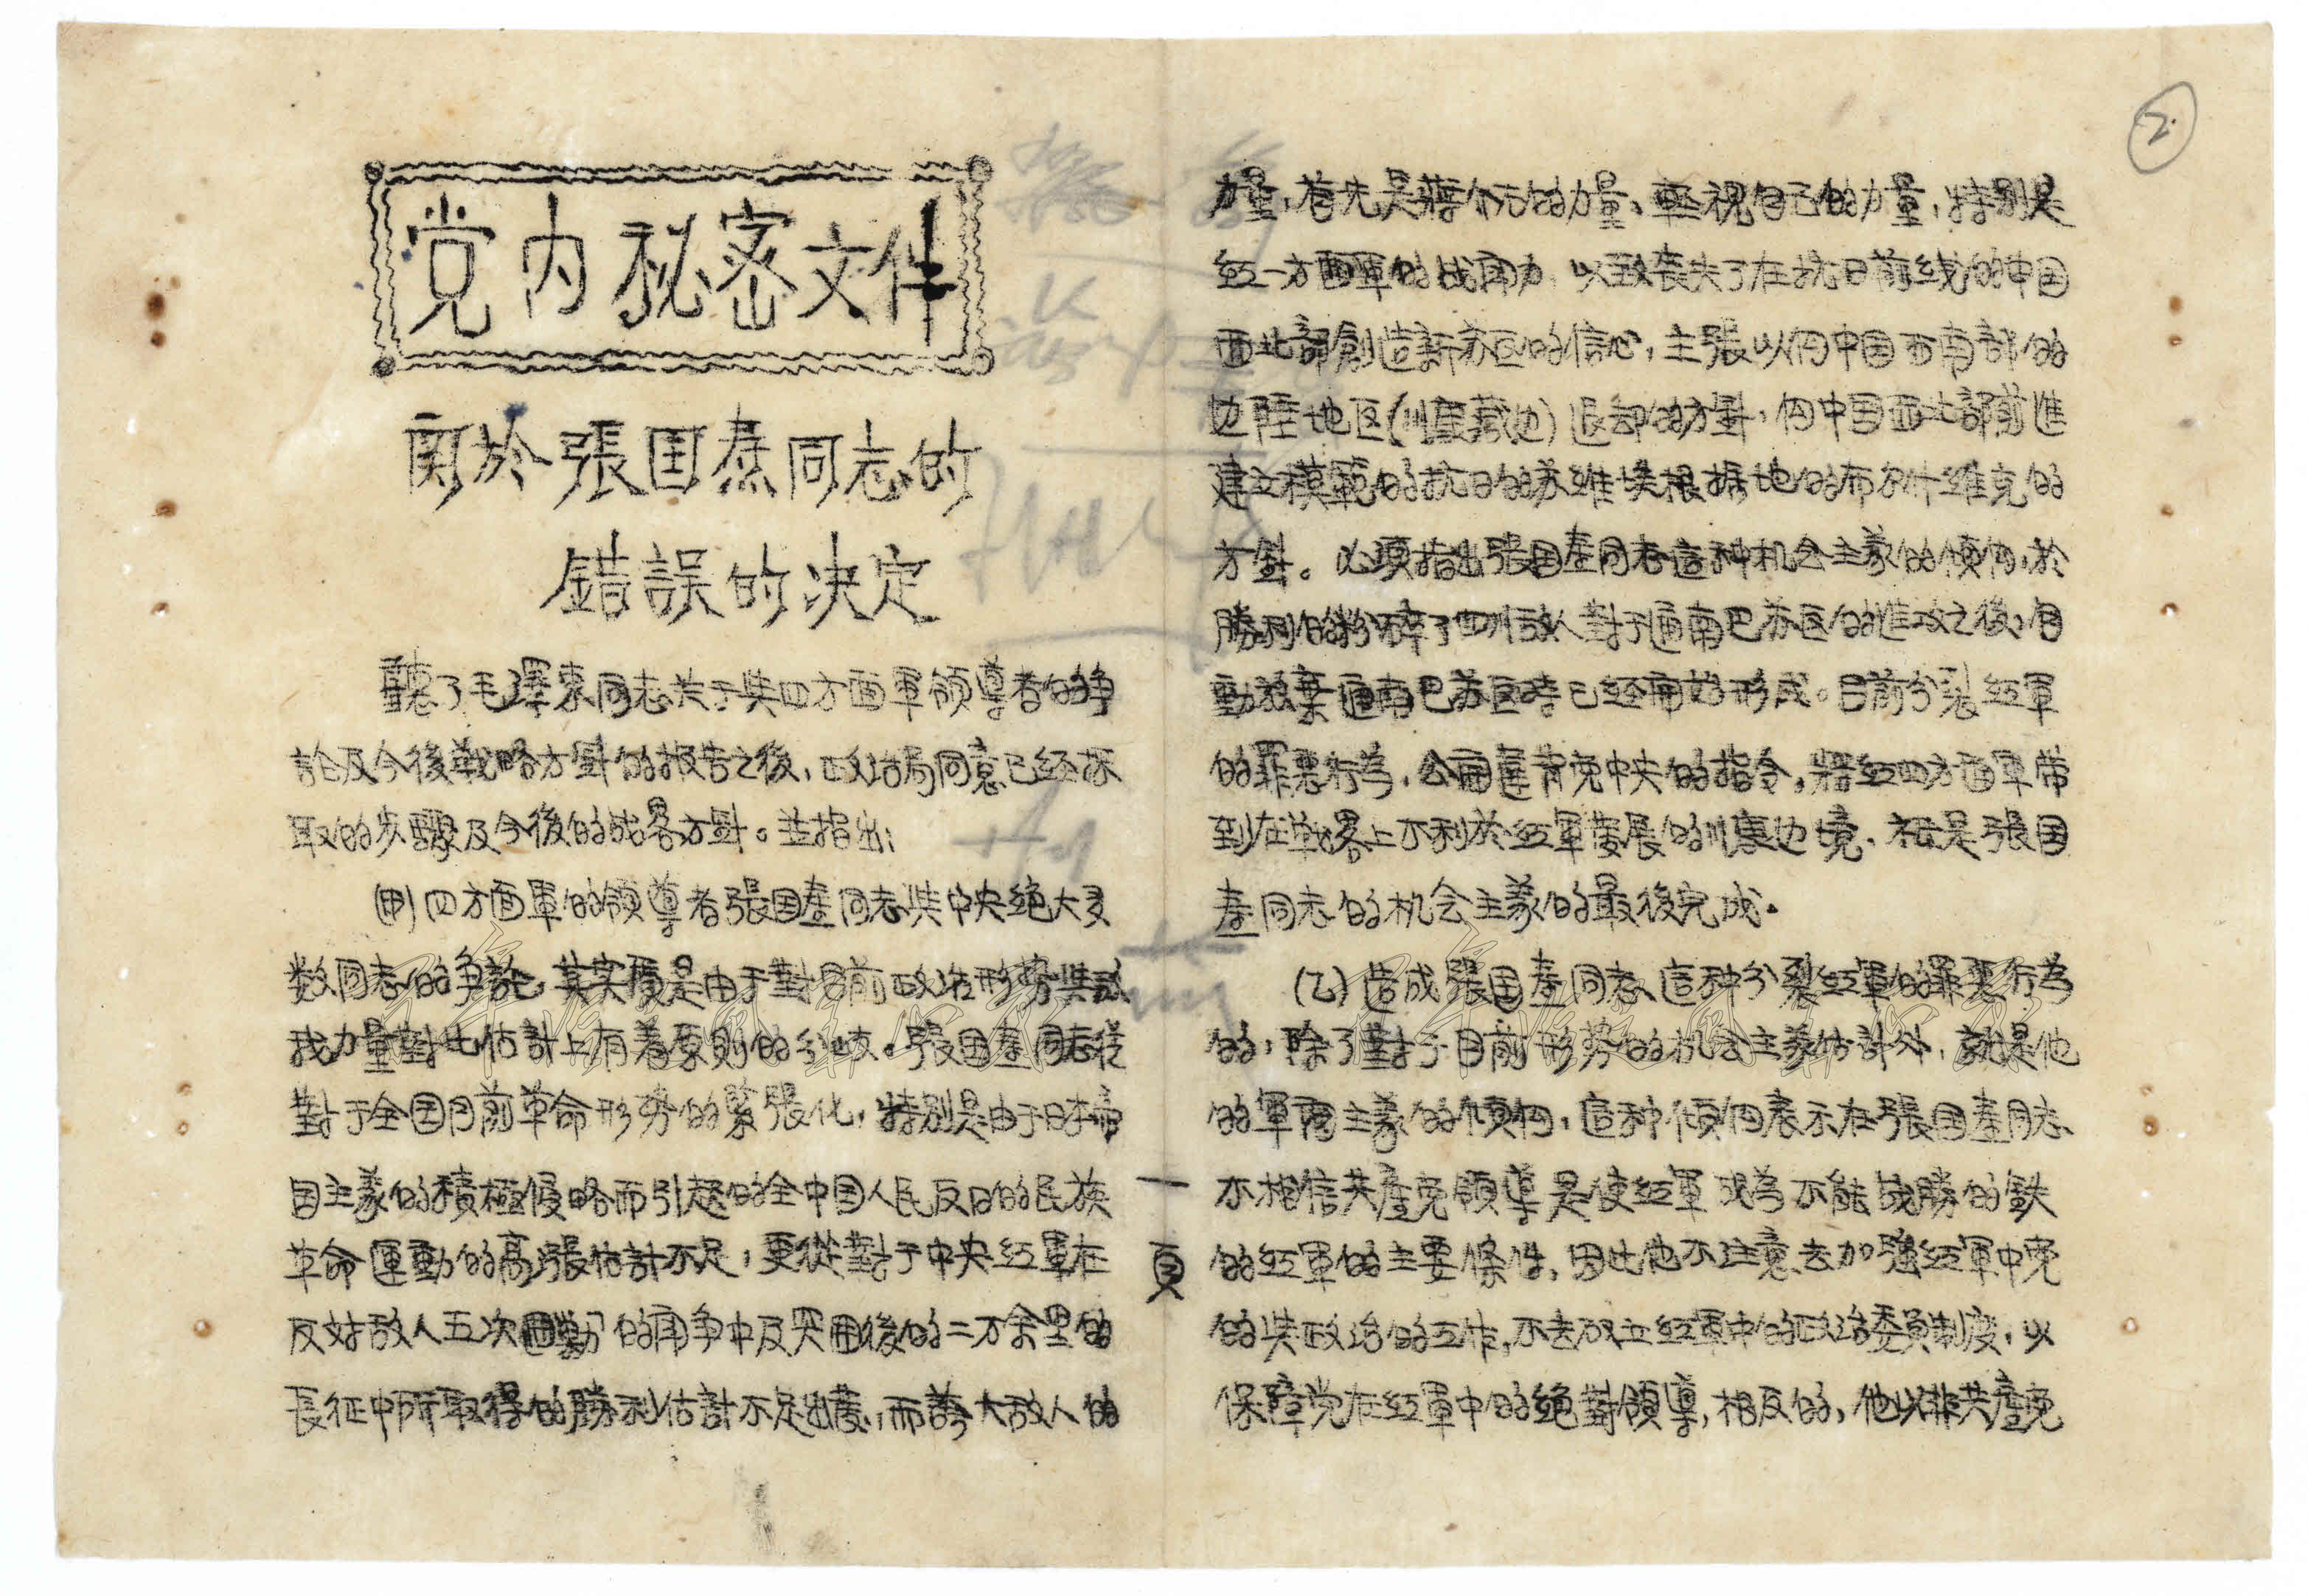 党内秘密文件
関於張国焘同志的
錯誤的决定
聽了毛澤東同志关于與四方面軍領導者的争
論及今後戰略方針的报告之後，政治局同意已经採
取的步驟及今後的战畧方針。並指出：
(甲)四方面軍的領導者張国焘同志與中央绝大多
数同志的争論，其实质是由于對目前政治形势與敌
我力量對比估計上有着原则的分歧。張国焘同志從
對于全国目前革命形势的緊張化，特别是由于日本帝
国主義的積極侵略而引起的全中国人民反日的民族
革命運動的高漲估計不足，更從對于中央红軍在
反对敌人五次「圍勦」的鬥争中及突囲後的二万余里的
長征中所取得的勝利估計不足出發，而誇大敌人的
一頁
②
力量，首先是蒋介石的力量，輕視自己的力量，特别是
红一方面軍的战鬥力，以致丧失了在抗日前线的中国
西北部創造新苏区的信心，主張以向中国西南部的
边陲地区(川康藏边)退却的方針，代替向中国西北部前進
建立模範的抗日的苏维埃根据地的布尔什维克的
方針。必須指出張国焘同志這种机会主義的傾向，於
勝利的粉碎了四川敌人對于通南巴苏区的進攻之後，自
動放棄通南巴苏区時已经開始形成。目前分裂红軍
的罪恶行為，公開違背党中央的指令，將红四方面軍带
到在战畧上不利於红軍發展的川康边境，祗是張国
焘同志的机会主義的最後完成。
(乙)造成張国焘同志這种分裂红軍的罪恶行為
的，除了對于目前形势的机会主義估計外，就是他
的軍閥主義的傾向，這种傾向表示在張国焘同志
不相信共產党領導是使红軍成為不能战勝的鉄
的红軍的主要條件，因此他不注意去加强红軍中党
的與政治的工作，不去确立红軍中的政治委員制度，以
保障党在红軍中的绝對領導，相反的，他以非共產党